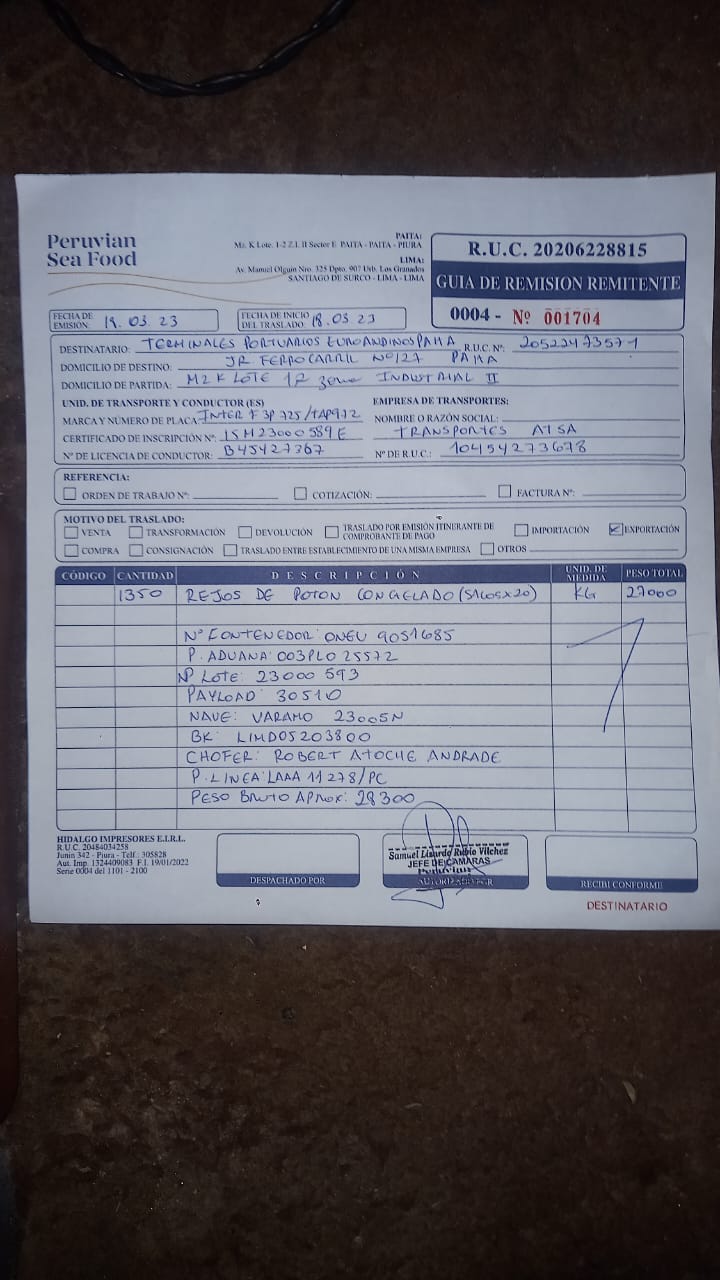 Peruvian
Sea Food
PAITA:
Mz. K Lote. 1-2 Z.I. II Sector E PAITA - PAITA - PIURA
LIMA:
Av. Manuel Olguin Nro. 325 Dpto. 907 Urb. Los Granados
SANTIAGO DE SURCO - LIMA - LIMA
R.U.C. 20206228815
GUIA DE REMISION REMITENTE
0004 - Nº 001704
FECHA DE EMISIÓN: 19.03.23
FECHA DE INICIO DEL TRASLADO: 18.03.23
DESTINATARIO: TERMINALES PORTUARIOS EUROANDINOS PAITA R.U.C. Nº: 20522473571
DOMICILIO DE DESTINO: JR FERROCARRIL Nº127 PAITA
DOMICILIO DE PARTIDA: MZ K LOTE 12 zona INDUSTRIAL II
UNID. DE TRANSPORTE Y CONDUCTOR (ES)
EMPRESA DE TRANSPORTES:
MARCA Y NÚMERO DE PLACA: INTER F3P 725/TAP972
NOMBRE O RAZÓN SOCIAL:
CERTIFICADO DE INSCRIPCIÓN Nº: 15M23000589E
TRANSPORTES ATSA
Nº DE LICENCIA DE CONDUCTOR: B45427367
Nº DE R.U.C.: 10454273678
REFERENCIA:
ORDEN DE TRABAJO Nº: COTIZACIÓN: FACTURA Nº:
MOTIVO DEL TRASLADO:
VENTA TRANSFORMACIÓN DEVOLUCIÓN TRASLADO POR EMISIÓN ITINERANTE DE COMPROBANTE DE PAGO IMPORTACIÓN EXPORTACIÓN
COMPRA CONSIGNACIÓN TRASLADO ENTRE ESTABLECIMIENTO DE UNA MISMA EMPRESA OTROS
CÓDIGO CANTIDAD DESCRIPCIÓN UNID. DE MEDIDA PESO TOTAL
1350 REJOS DE POTON CONGELADO (SACOSX20) KG 27000
Nº CONTENEDOR: ONEU 9051685
P. ADUANA: 003PLO 25572
Nº LOTE: 23000 593
PAYLOAD: 30510
NAVE: VARAMO 23005N
BK: LIMD05203800
CHOFER: ROBERT ATOCHE ANDRADE
P. LINEA: LAAA 11278/PC
PESO BRUTO APROX: 28300
HIDALGO IMPRESORES E.I.R.L.
R.U.C. 20484034258
Junin 342 - Piura - Telf.: 305828
Aut. Imp. 1324409083 F.I. 19/01/2022
Serie 0004 del 1101 - 2100
DESPACHADO POR
Samuel Lizardo Rubio Vilchez
JEFE DE CAMARAS
Peruvian
RECIBI CONFORME
DESTINATARIO